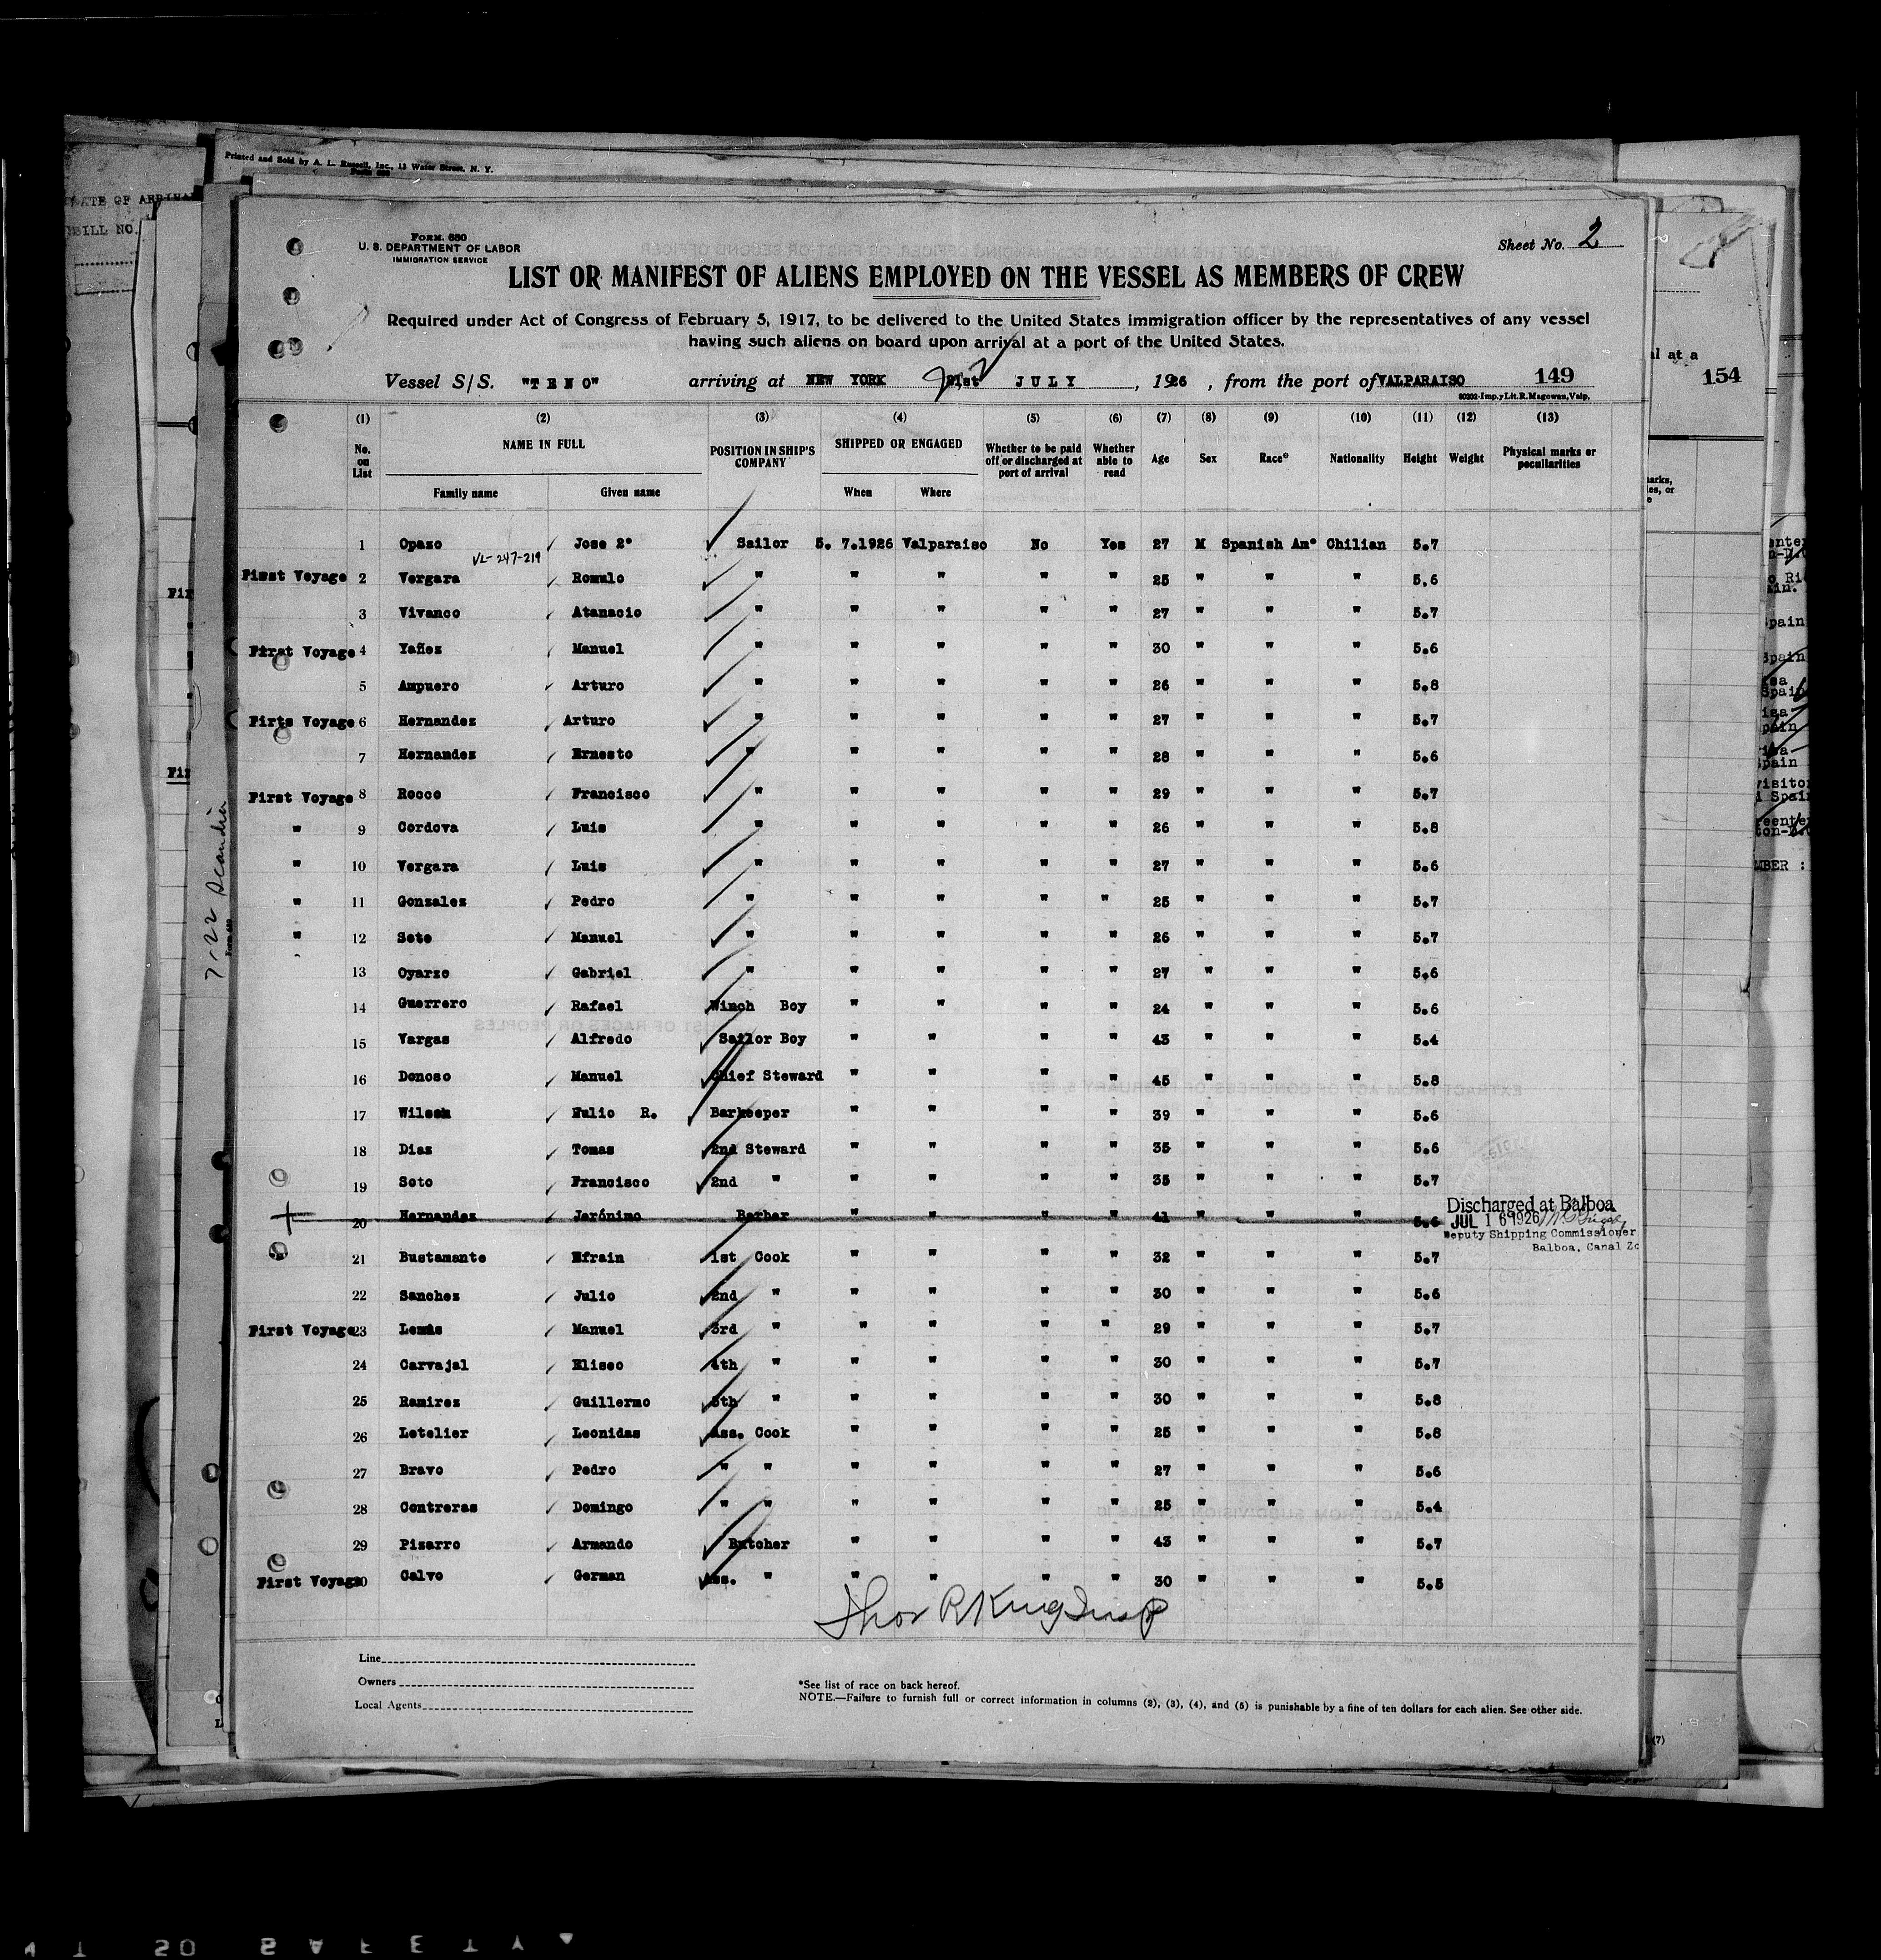 Printed and Sold by A. L. Russell, Inc., 13 Water Street, N. Y.
FORM. 680
U. S. DEPARTMENT OF LABOR
IMMIGRATION SERVICE
Sheet No. 2
LIST OR MANIFEST OF ALIENS EMPLOYED ON THE VESSEL AS MEMBERS OF CREW
Required under Act of Congress of February 5, 1917, to be delivered to the United States immigration officer by the representatives of any vessel
having such aliens on board upon arrival at a port of the United States.
Vessel S/S. "TENO" arriving at NEW YORK 21st JULY, 1926, from the port of VALPARAISO 149
80202-Imp.y Lit.R.Magowan,Valp.
154
(1) (2) (3) (4) (5) (6) (7) (8) (9) (10) (11) (12) (13)
No. on List NAME IN FULL POSITION IN SHIP'S COMPANY SHIPPED OR ENGAGED Whether to be paid off or discharged at port of arrival Whether able to read Age Sex Race* Nationality Height Weight Physical marks or peculiarities
Family name Given name When Where
1 Opazo Jose 2° Sailor 5. 7.1926 Valparaiso No Yes 27 M Spanish Am° Chilian 5.7
VL-247-219
First Voyage 2 Vergara Romulo " " " " " 25 " " " 5.6
3 Vivanco Atanacio " " " " " 27 " " " 5.7
First Voyage 4 Yañez Manuel " " " " " 30 " " " 5.6
5 Ampuero Arturo " " " " " 26 " " " 5.8
Firts Voyage 6 Hernandez Arturo " " " " " 27 " " " 5.7
7 Hernandez Ernesto " " " " " 28 " " " 5.6
First Voyage 8 Rocco Francisco " " " " " 29 " " " 5.7
" 9 Cordova Luis " " " " " 26 " " " 5.8
" 10 Vergara Luis " " " " " 27 " " " 5.6
" 11 Gonzalez Pedro " " " " " 25 " " " 5.7
" 12 Soto Manuel " " " " " 26 " " " 5.7
13 Oyarzo Gabriel " " " " " 27 " " " 5.6
14 Guerrero Rafael Winch Boy " " " " 24 " " " 5.6
15 Vargas Alfredo Sailor Boy " " " " 43 " " " 5.4
16 Donoso Manuel Chief Steward " " " " 45 " " " 5.8
17 Wilson Fulio R. Barkeeper " " " " 39 " " " 5.6
18 Diaz Tomas 2nd Steward " " " " 35 " " " 5.6
19 Soto Francisco 2nd " " " " " 35 " " " 5.7
20 Hernandez Jerónimo Barber " " " " 41 " " " 5.6
Discharged at Balboa
JUL 16 1926
Deputy Shipping Commissioner
Balboa, Canal Zo
21 Bustamante Efrain 1st Cook " " " " 32 " " " 5.7
22 Sanchez Julio 2nd " " " " " 30 " " " 5.6
First Voyage 23 Lemus Manuel 3rd " " " " " 29 " " " 5.7
24 Carvajal Eliseo 4th " " " " " 30 " " " 5.7
25 Ramirez Guillermo 5th " " " " " 30 " " " 5.8
26 Letelier Leonidas Ass. Cook " " " " 25 " " " 5.8
27 Bravo Pedro " " " " " " 27 " " " 5.6
28 Contreras Domingo " " " " " " 25 " " " 5.4
29 Pizarro Armando Butcher " " " " 43 " " " 5.7
First Voyage 30 Calvo German Ass. " " " " " 30 " " " 5.5
Thos R King Insp
Line
Owners
Local Agents
*See list of race on back hereof.
NOTE.—Failure to furnish full or correct information in columns (2), (3), (4), and (5) is punishable by a fine of ten dollars for each alien. See other side.
SAFETY